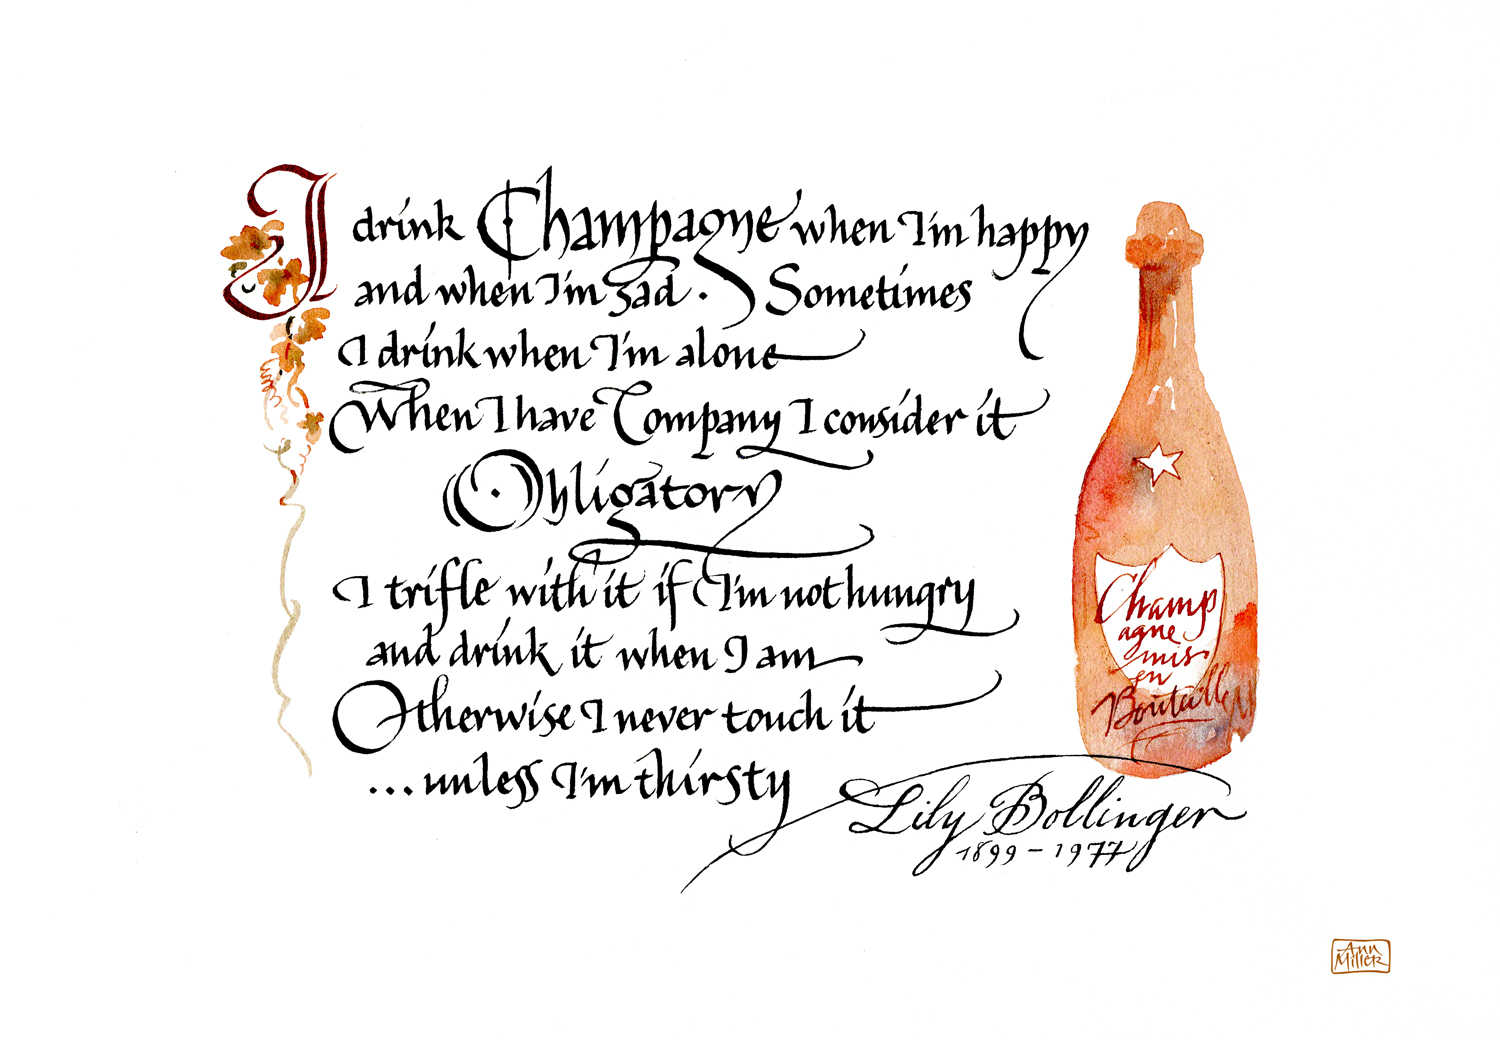 I drink Champagne when I'm happy
and when I'm sad. Sometimes
I drink when I'm alone
When I have Company I consider it
Obligatory
I trifle with it if I'm not hungry
and drink it when I am
Otherwise I never touch it
...unless I'm thirsty
Lily Bollinger
1899-1977
Champ
agne
mis
en
Bouteille
Ann
Miller